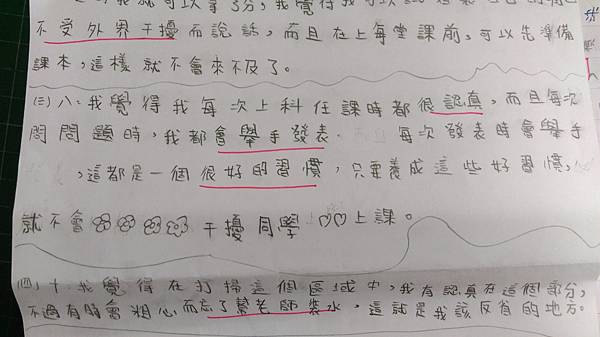 不受外界干擾而說話,而且在上每堂課前,可以先準備
課本,這樣就不會來不及了。
(三)八、我覺得我每次上科任課時都很認真,而且每次
問問題時,我都會舉手發表. 每次發表時會舉手
,這都是一個很好的習慣,只要養成這些好習慣,
就不會 干擾同學 上課。
(四)十、我覺得在打掃這個區域中,我有認真在這個部分,
不過有時會粗心而忘了幫老師裝水,這就是我該反省的地方。